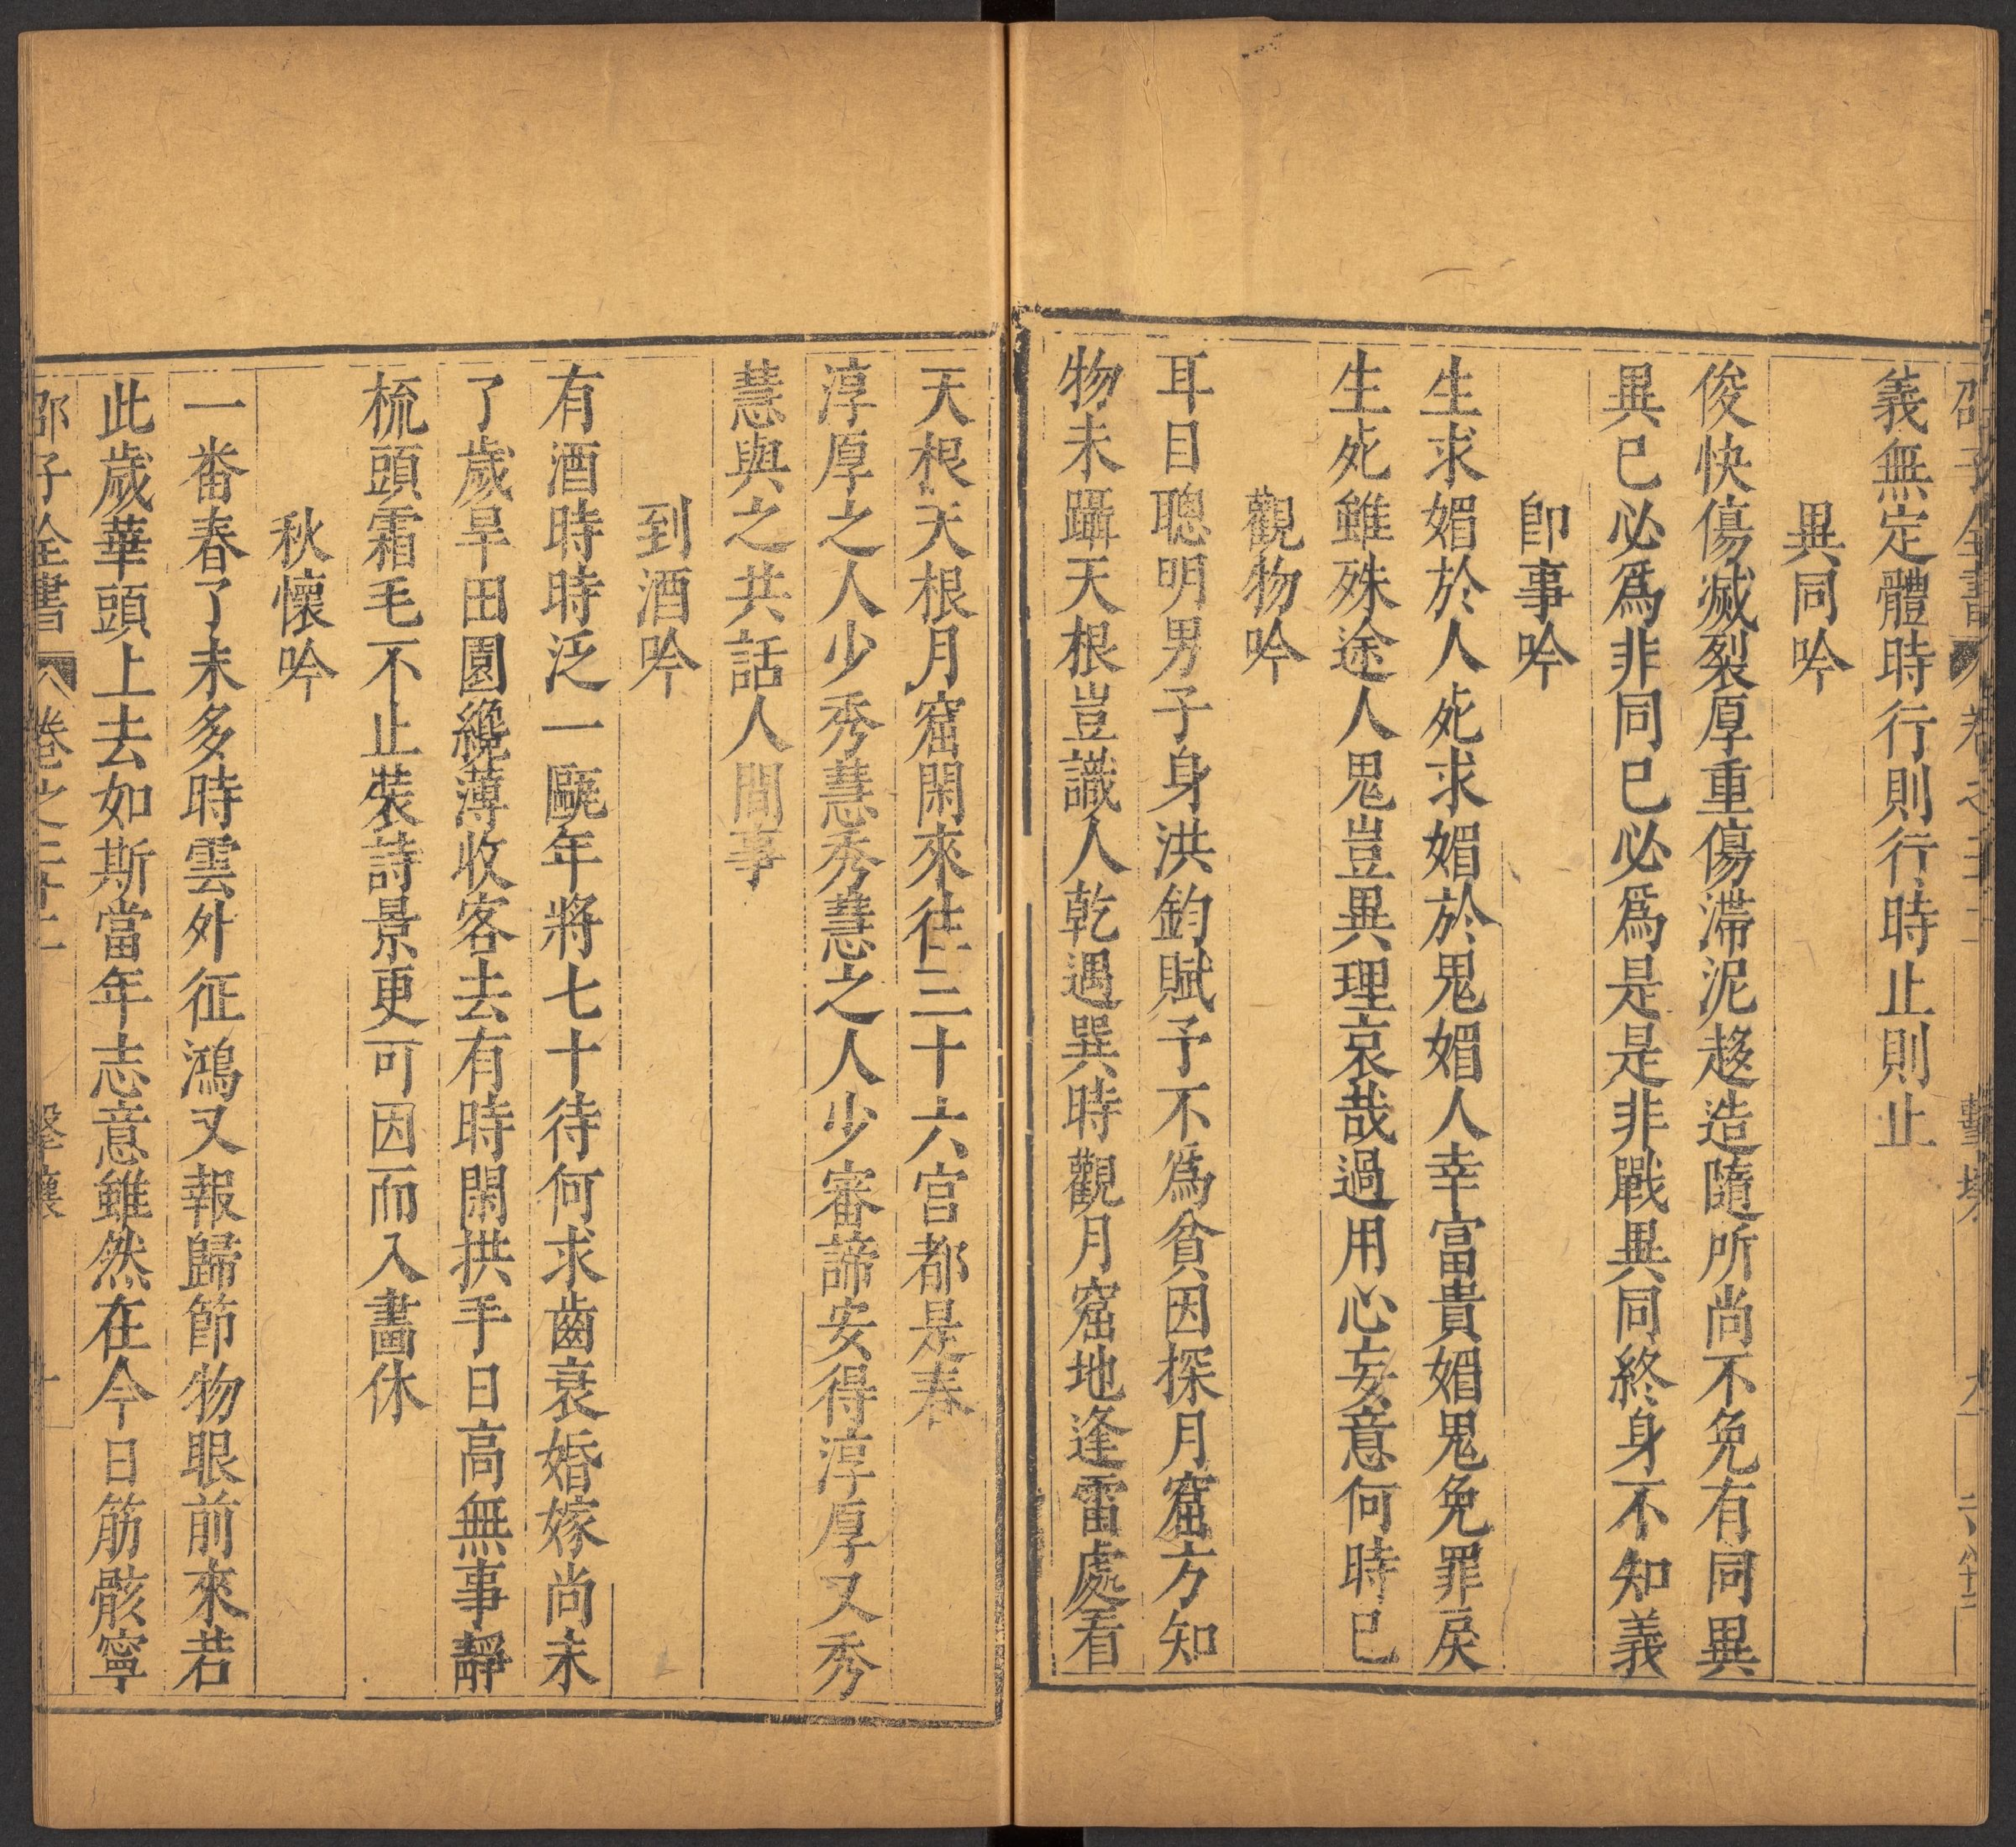 義無定體時行則行時止則止
異同吟
俊快傷滅裂厚重傷滯泥趍造隨所尚不免有同異
異已必爲非同已必爲是是非戰異同終身不知義
卽事吟
生求媚於人死求媚於鬼媚人幸富貴媚鬼免罪戾
生死雖殊途人鬼豈異理哀哉過用心妄意何時已
觀物吟
耳目聰明男子身洪鈞賦予不爲貧因探月窟方知
物未躡天根豈識人乾遇巽時觀月窟地逢雷處看
天根天根月窟閑來往三十六宮都是春
淳厚之人少秀慧秀慧之人少審諦安得淳厚又秀
慧與之共話人間事
到酒吟
有酒時時泛一甌年將七十待何求齒衰婚嫁尚未
了歲旱田園纔薄收客去有時閑拱手日高無事靜
梳頭霜毛不止裝詩景更可因而入畵休
秋懷吟
一番春了未多時雲外征鴻又報歸節物眼前來若
此歲華頭上去如斯當年志意雖然在今日筋骸寧
邵子全書 卷之二十 擊壤